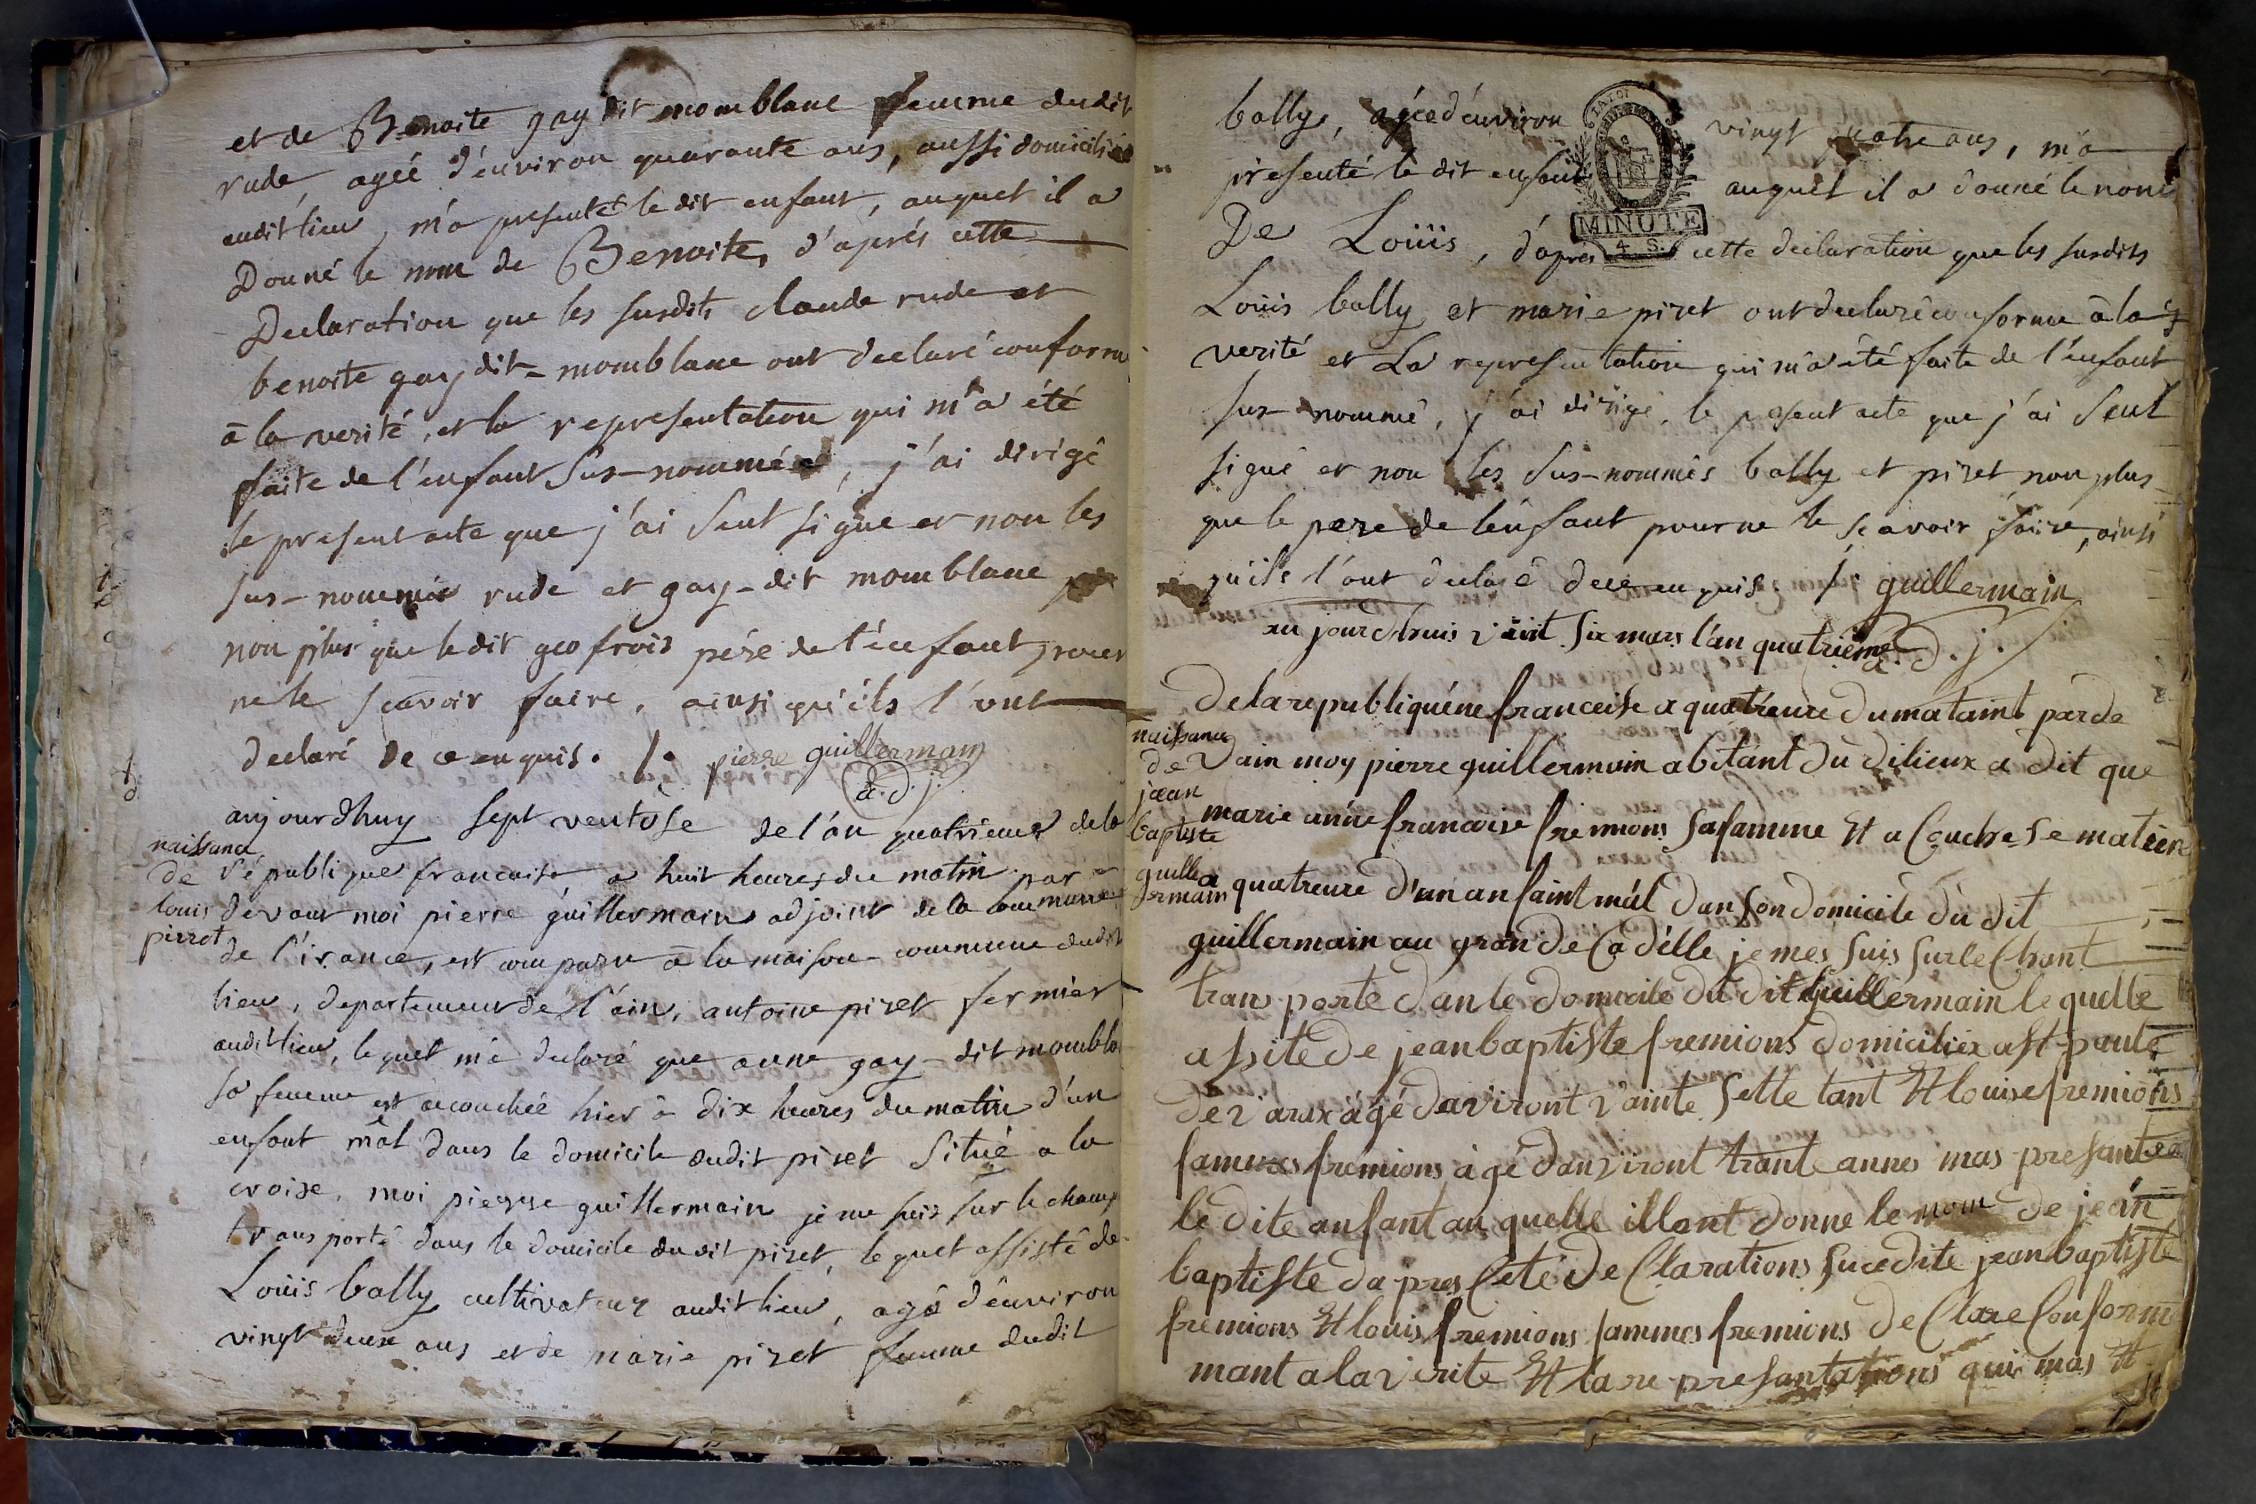 et de Benoite gay dit momblanc femme dudit
rude, ageé d'énviron quarante ans, aussi domiciliée
audit lieu, m'a presenté le dit enfant, auquel il a
Donné le nom de Benoite, d'aprés cette
Declaration que les susdits claude rude et
benoite gay dit-momblanc ont declaré conforme
à la verité, et la representation qui m'a été
faite de l'enfant sus-nommée, j'ai dirigé
le present acte que j'ai seul signe et non les
sus-nommés rude et gay-dit momblanc
non plus que le dit geofrois pére de l'énfant pour
ne le scavoir faire, ainsi qu'ils l'ont
declaré de ce enquis. /. pierre guillermain
a.d.j.
naissance de louis pirret
aujourdhuy sept ventôse de l'an quatrieme de la
république francaise a huit heures du matin par
devant moi pierre guillermain adjoint de la commune
de l'irance, est comparu à la maison commune dudit
lieu, departement de l'ain, antoine piret fermier
audit lieu, lequel m'a declaré que anne gay-dit mombla
sa femme est acouchée hier à dix heures du matin d'un
enfant mâl dans le domicile dudit piret situé a la
croise, moi pierre guillermain je me suis sur le champ
transporté dans le domicile dudit piret, lequel assisté de
Loüis bally cultivateur audit lieu, agé d'énviron
vingt deux ans et de marie piret femme dudit
bally, agée d'énviron vingt quatre ans, m'a
presenté le dit enfant auquel il a donné le nom
De Loüis, d'apres cette declaration que les susdits
MINUTE
4. S.
Loüis bally et marie piret ont declaré conforme à la
verité et La representation qui m'a été faite de l'énfant
sus-nommé, j'ai dirigé, le present acte que j'ai seul
signé et non les sus-nommés bally et piret non plus
que le pere de lénfant pour ne le scavoir faire, ainsi
qu'ils l'ont declaré de ce enquis. /. guillermain
a.d.j.
au jourdhuis vint six mars l'an quatriéme
naissance de jean baptiste guillermain
de la republiquéne francaise a quatreure du mataint parde
vain moy pierre guillermain abitant du dilieux a dit que
marie anne francoise fremions sa famme et a Couche se matien
a quatreure d'un anfaint mâl dan son domicile du dit
guillermain au grande Cadélle je mes suis surle Chant
tranporte dan le domicile du dit guillermain le quelle
assite de jean baptiste fremions domicilier ast paule
de vaux agé daviront vainte sette tant et louise fremions
fammes fremions agé danviront trante annes mas presantes
le dite anfant au quelle illant donne le nom de jean
baptiste dapres Cete de Clarations sucedite jean baptiste
fremions et louis fremions fammes fremions de Clare Conforme
mant a la verite et la re presantations qui mas et